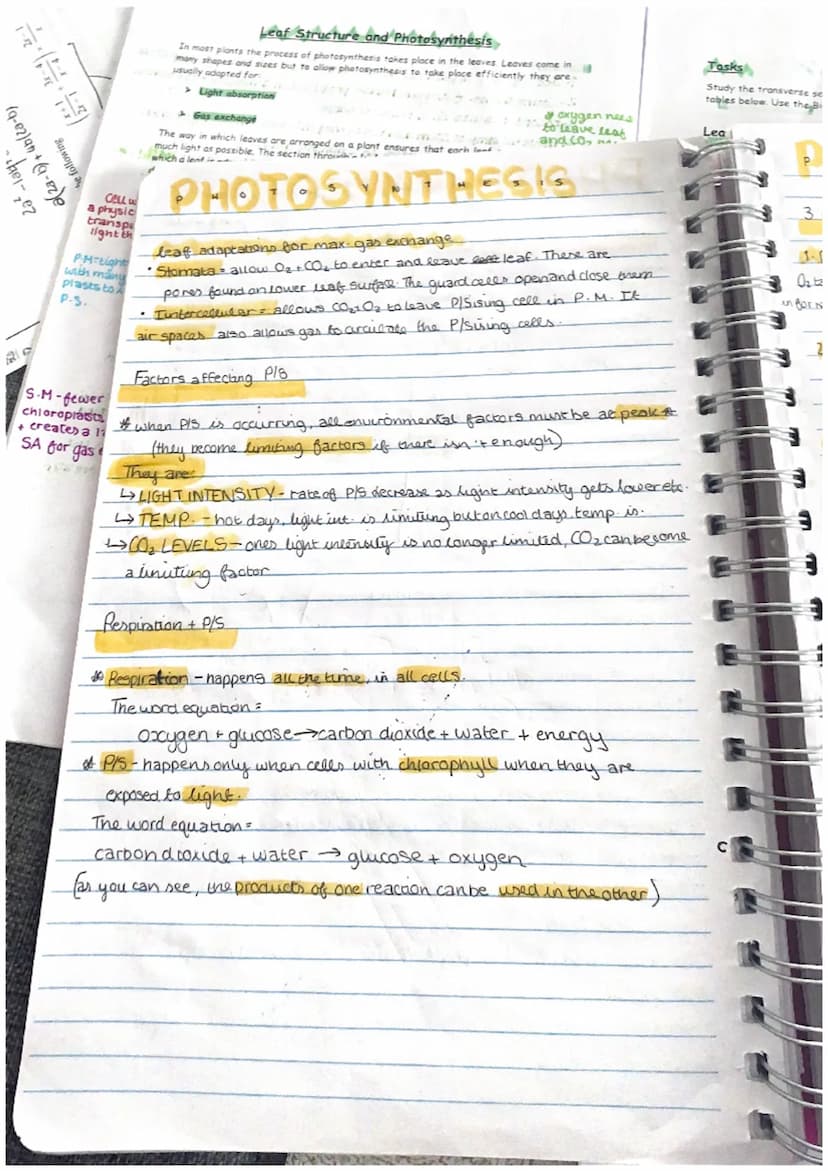 Leaf Structure and Photosynthesis
In most plants the process of photosynthesis takes place in the leaves. Leaves come in
many shapes and sizes but to allow photosynthesis to take place efficiently they are
usually adapted for:
Light absorption
Gas exchange
The way in which leaves are arranged on a plant ensures that each leaf
much light as possible. The section through
which a leaf is
* oxygen nees
to leave leaf
and CO2
Tasks
Study the transverse se
tables below. Use the Bi
Lea
the following
Cell w
a physic
transpa
light th
P.M=tight
with many
plasts to
P.S.
S.M-fewer
chloroplasts
+ creates a l
SA for gas
PHOTOSYNTHESIS
PHOTOSYNTHESIS
leaf adaptations for max. gas exchange
• Stomata = allow O2 + CO2 to enter and leave leaf. These are
pores found on lower leaf surface. The guard cells open and close them
• Intercellular = allows CO2, O2 to leave P/Sising cell in P.M. It
air spaces also allows gas to circulate the P/Sising cells.
Factors affecting P/S
* when P/S is occurring, all environmental factors must be at peak *
(they become limiting factors if there isn't enough)
They are:
↳ LIGHT INTENSITY - rate of P/S decrease as light intensity gets lower etc.
↳ TEMP. - hot days, light int. is limiting but on cool days temp is.
↳ CO2 LEVELS - ones light intensity is no longer limited, CO2 can become
a limiting factor
Respiration + P/S
* Respiration - happens all the time, in all cells.
The word equation =
oxygen + glucose → carbon dioxide + water + energy
* P/S - happens only when cells with chlorophyll when they are
exposed to light.
The word equation =
carbon dioxide + water → glucose + oxygen
(as you can see, the products of one reaction can be used in the other)
P
3
O2 to
C